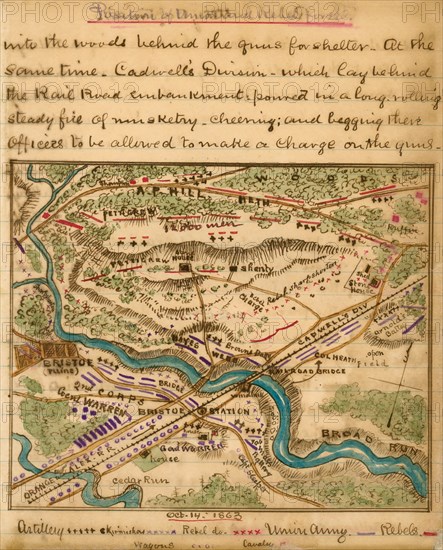 Position of Union and Rebel forces
into the woods behind the guns for shelter - At the
same time - Cadwell's Division - which lay behind
the Rail Road embankment, poured in a long rolling
steady fire of musketry - cheering; and begging their
Officers to be allowed to make a charge on the guns -
WOODS
A.P. HILL
HETH
PETTIGREW
12,000 men
HOUSE
Shenty
Rebel Sharpshooters
CADWELL'S DIV
HAYES
WEBB
COL HEATH
open
field
RAILROAD BRIDGE
BRISTOE
(RUINS)
2nd CORPS
Genl WARREN
BRIDGE
BRISTOE STATION
Genl WARREN
house
BROAD RUN
ORANGE & ALEX R.R.
Cedar Run
Oct. 14. 1863
Artillery Skirmishers Rebel do. Union Army Rebels
Wagons Cavalry
PHOTO12